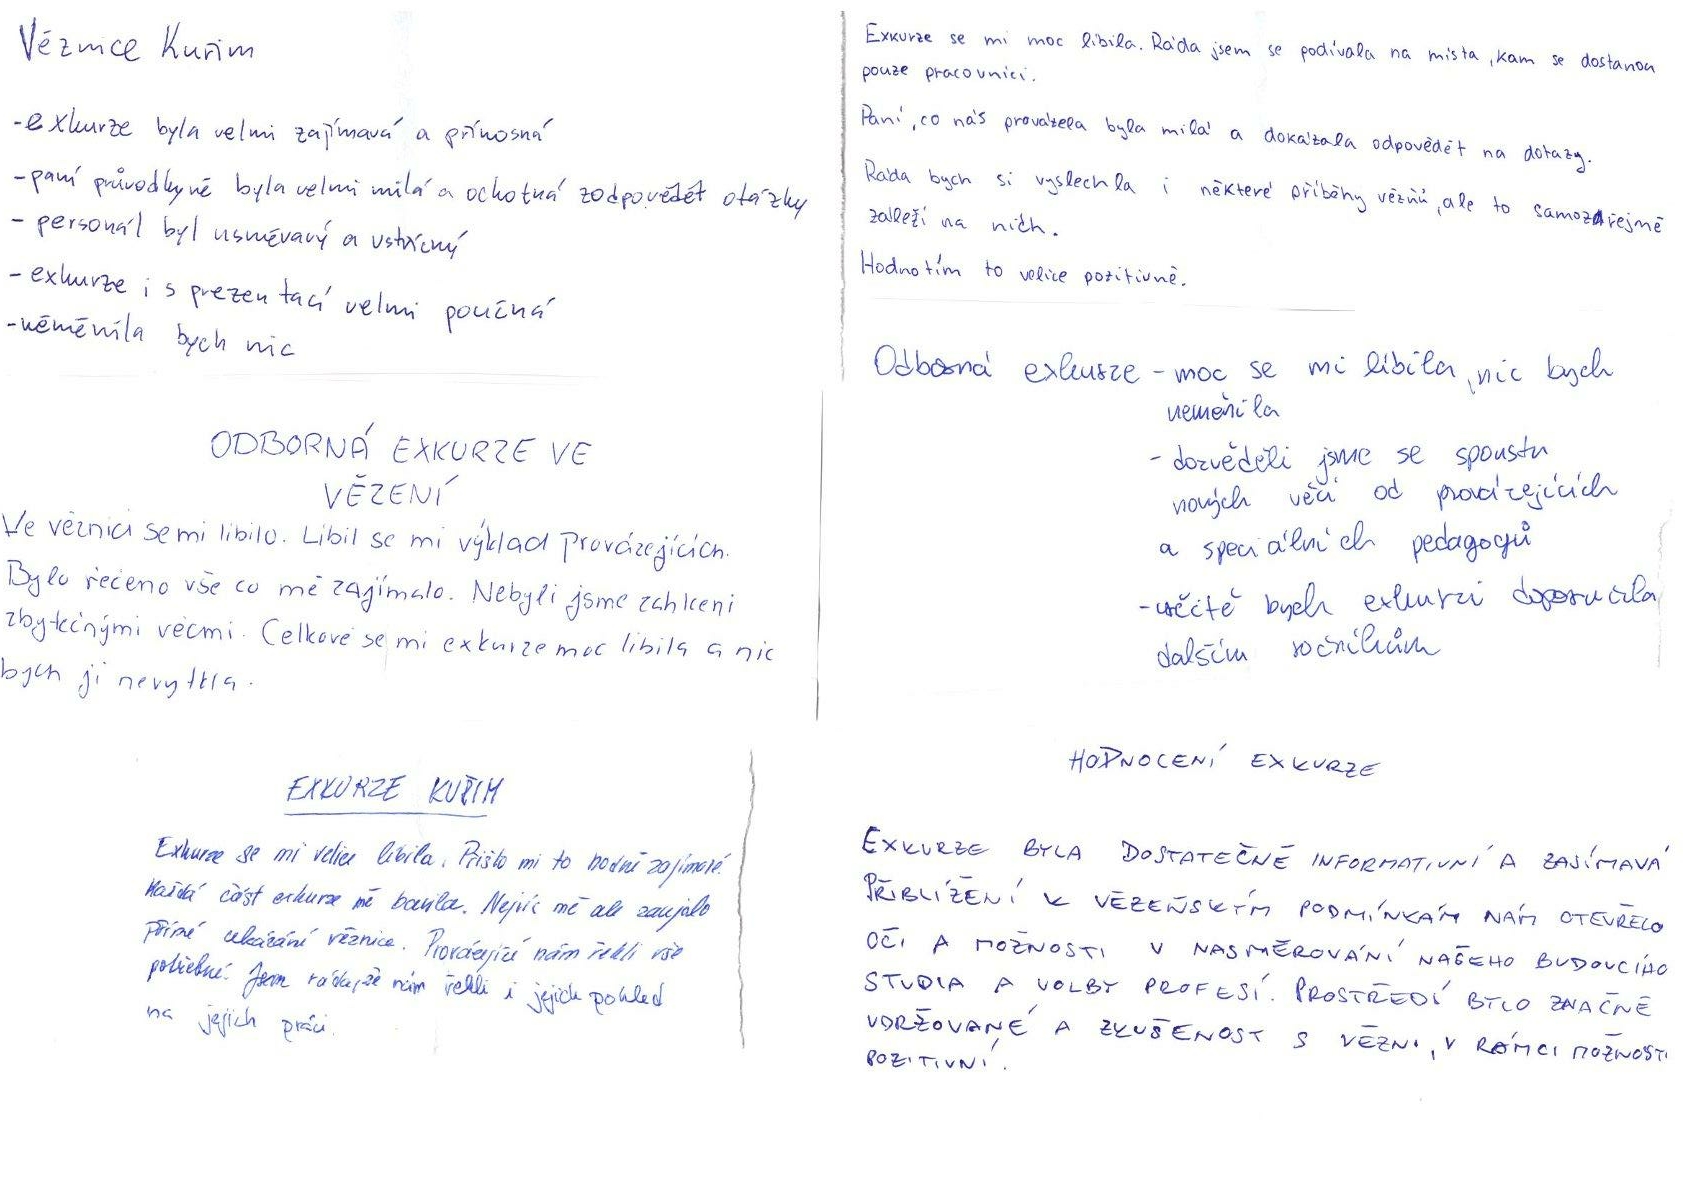 Věznice Kuřim
-exkurze byla velmi zajímavá a přínosná
-paní průvodkyně byla velmi milá a ochotná zodpovědět otázky
- personál byl usměvavý a vstřícný
- exkurze i s prezentací velmi poučná
-neměnila bych nic
Exkurze se mi moc líbila. Ráda jsem se podívala na místa, kam se dostanou
pouze pracovníci.
Paní, co nás provázela byla milá a dokázala odpovědět na dotazy.
Ráda bych si vyslechla i některé příběhy vězňů, ale to samozřejmě
záleží na nich.
Hodnotím to velice pozitivně.
ODBORNÁ EXKURZE VE
VĚZENÍ
Ve věznici se mi líbilo. Líbil se mi výklad provázejících.
Bylo řečeno vše co mě zajímalo. Nebyli jsme zahlceni
zbytečnými věcmi. Celkově se mi exkurze moc líbila a nic
bych jí nevytkla.
Odborná exkurze - moc se mi líbila, nic bych
neměnila
- dozvěděli jsme se spoustu
nových věcí od provázejících
a speciálních pedagogů
- určitě bych exkurzi doporučila
dalším ročníkům
EXKURZE KUŘIM
Exkurze se mi velice líbila. Přišlo mi to hodně zajímavé.
Každá část exkurze mě bavila. Nejvíc mě ale zaujalo
přímé ukázání věznice. Provázející nám řekli vše
potřebné. Jsem ráda, že nám řekli i jejich pohled
na jejich práci.
HODNOCENÍ EXKURZE
EXKURZE BYLA DOSTATEČNĚ INFORMATIVNÍ A ZAJÍMAVÁ
PŘIBLÍŽENÍ K VĚZEŇSKÝM PODMÍNKÁM NÁM OTEVŘELO
OČI A MOŽNOSTI V NASMĚROVÁNÍ NAŠEHO BUDOUCÍHO
STUDIA A VOLBY PROFESÍ. PROSTŘEDÍ BYLO ZNAČNĚ
UDRŽOVANÉ A ZKUŠENOST S VĚZNI, V RÁMCI MOŽNOSTI
POZITIVNÍ.